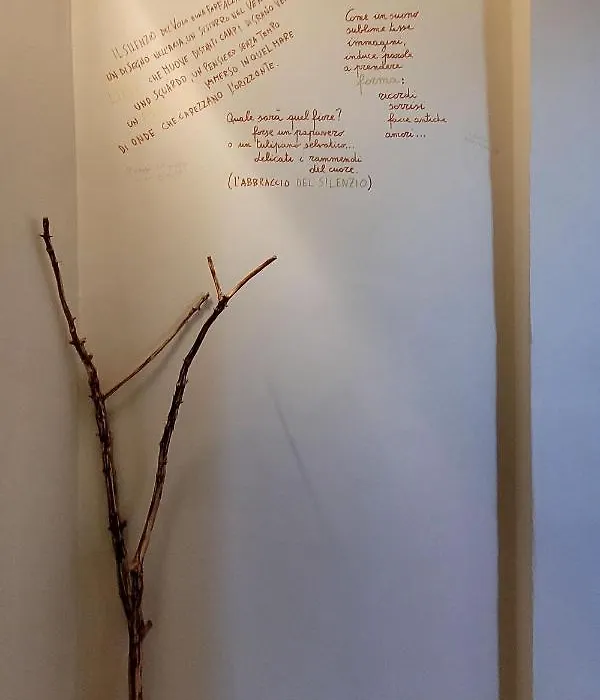 IL SILENZIO DEL VOLO
UN DISEGNO NELL'ARIA, UN SUSSURRO NEL
CHE MUOVE DORATI CAMPI DI GRANO
UNO SGUARDO, UN PENSIERO SENZA TEMPO
UN IMMERSO IN QUEL MARE
DI ONDE CHE CAREZZANO L'ORIZZONTE.
Come un suono
sublime tesse
immagini,
induce parole
a prendere
forma:
ricordi
sorrisi
facce antiche
amori...
Quale sarà quel fiore?
forse un papavero
o un tulipano selvatico...
delicati i rammendi
del cuore.
(L'ABBRACCIO DEL SILENZIO)